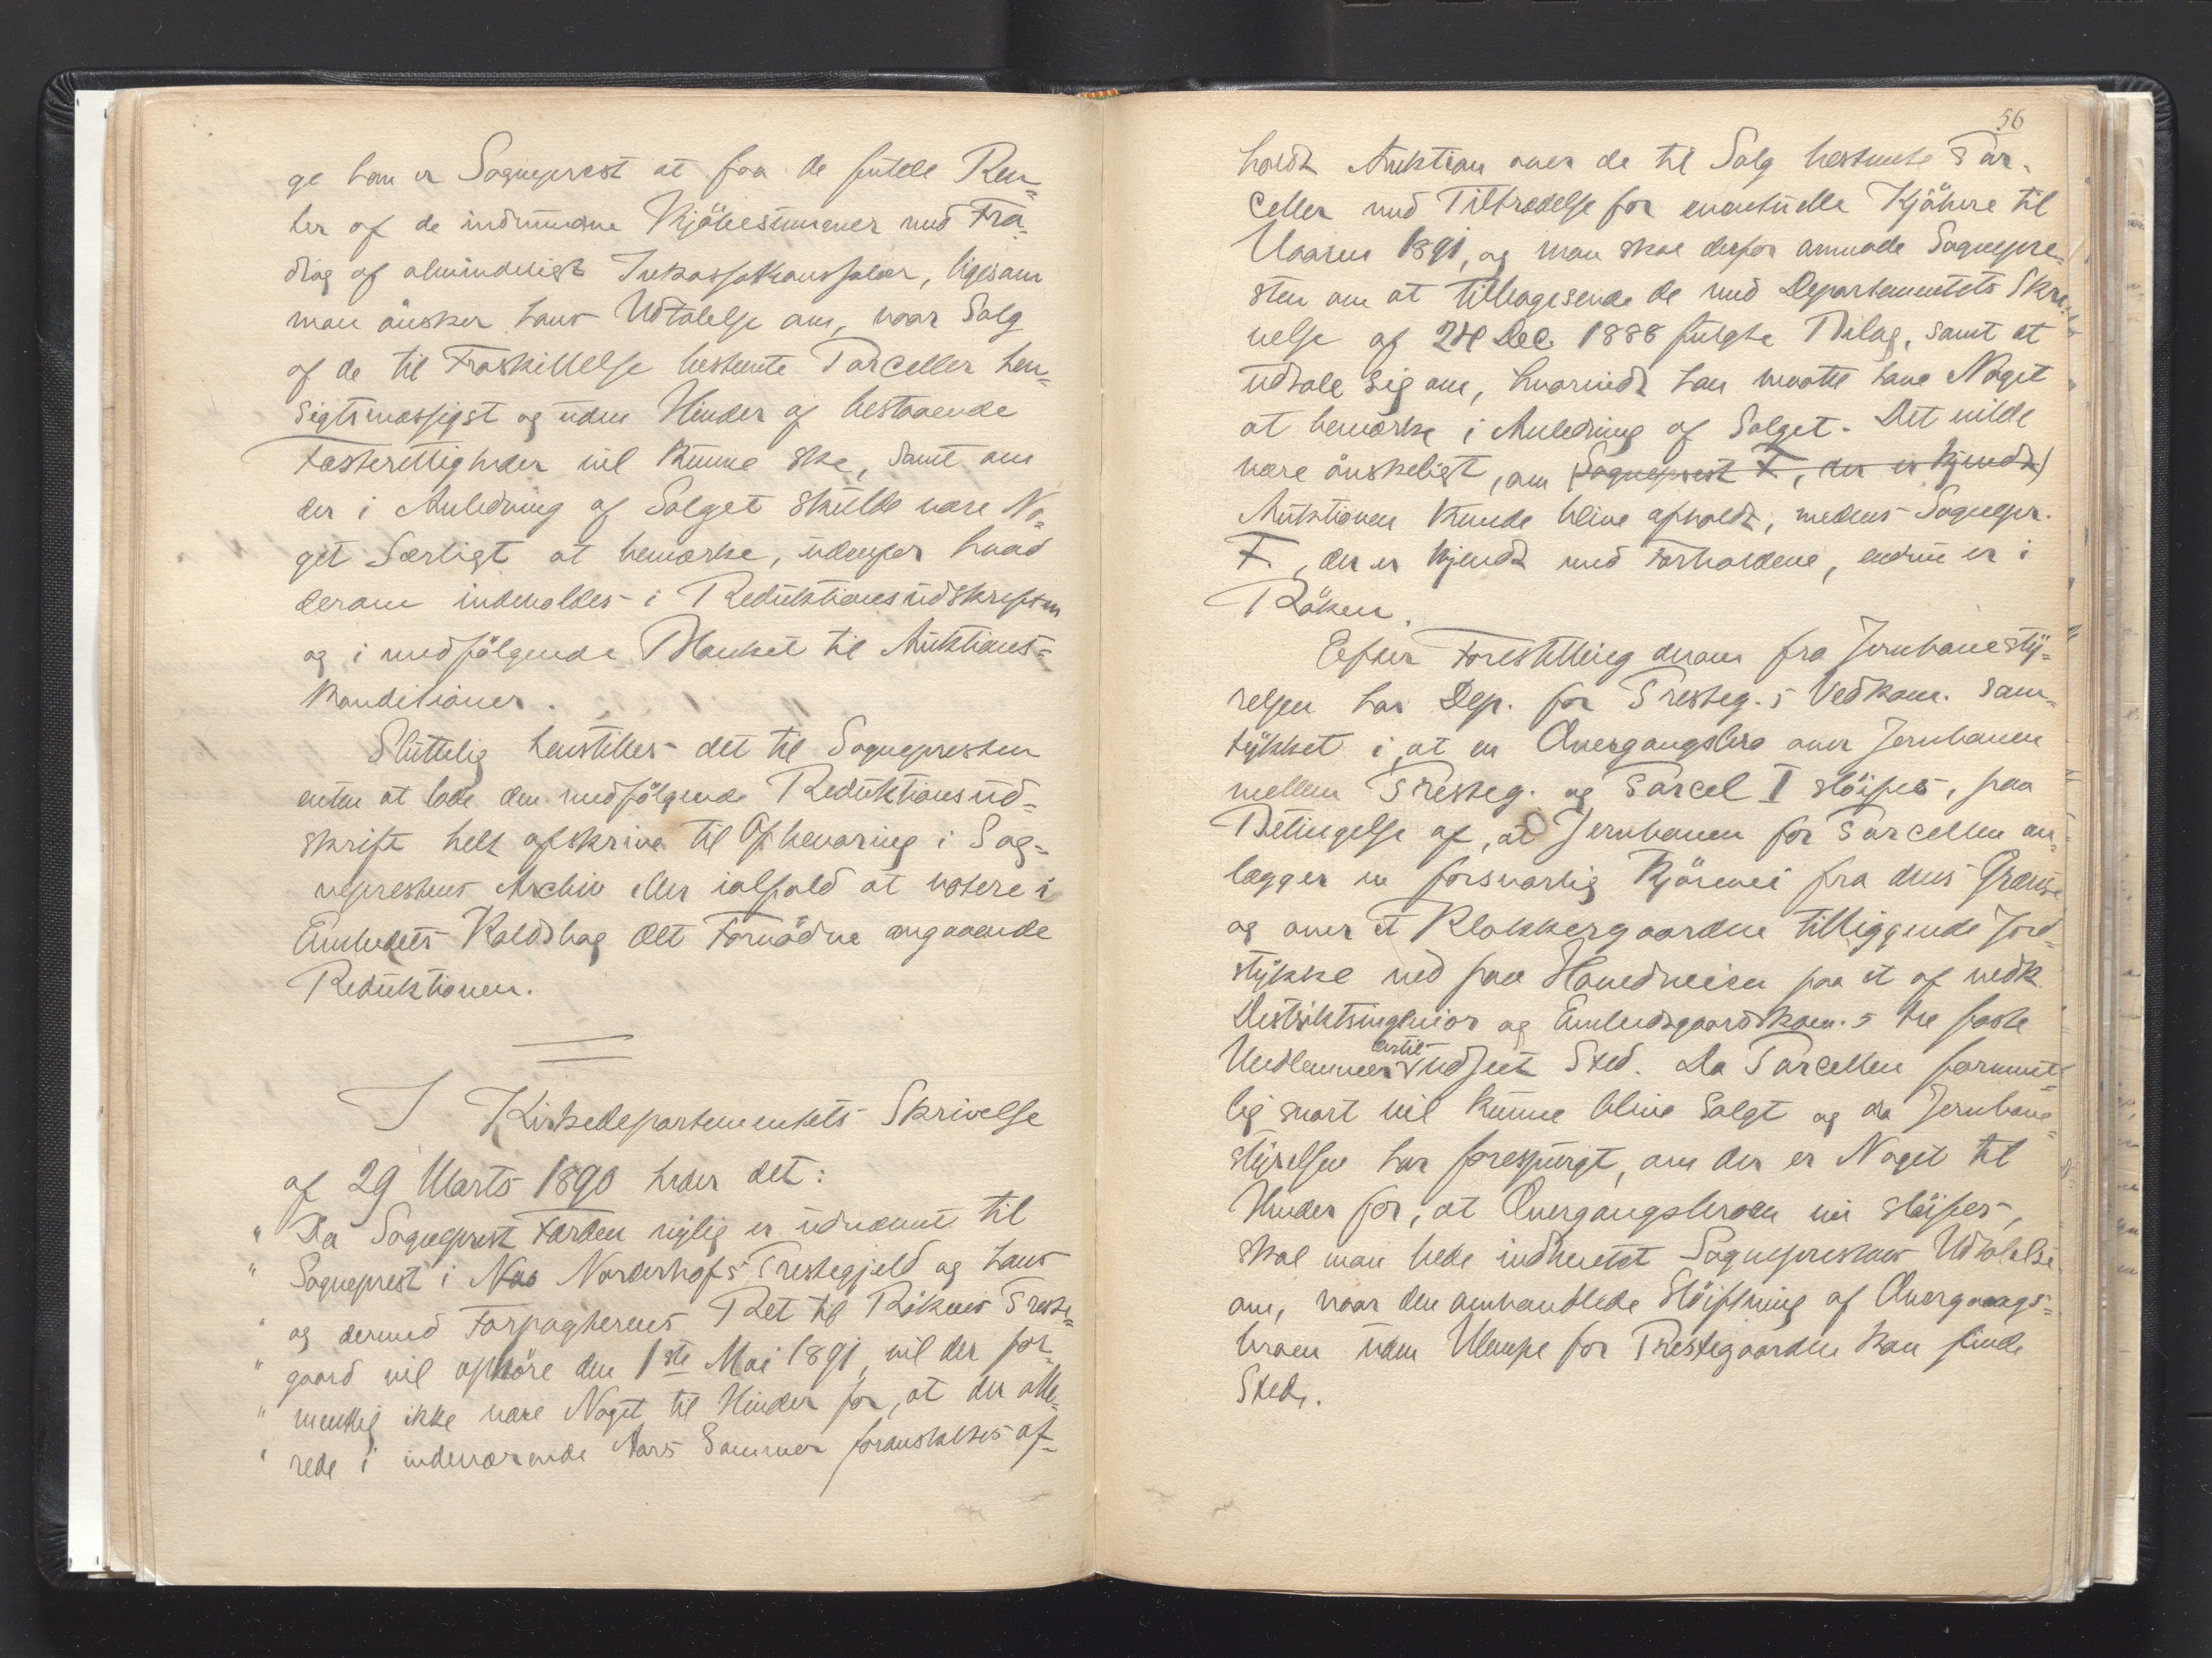 ge han er Sogneprest at faa de fulde Ren-
ter af de indvundne Kjöbesummer med Fra-
drag af almindeligt Inkassationssalær, ligesom
man önsker hans Udtalelse om, naar Salg
af de til Fraskillelse bestemte Parceller hen-
sigtsmæssigst og uden Hinder af bestaaende
Fæsterettigheder vil kunne ske, samt om
der i Anledning af Salget skulde være No-
get Særligt at bemærke, udenfor hvad
derom indeholdes i Reduktionsudskriften
og i medfölgende Blanket til Auktions-
konditioner.
Sluttelig henstilles det til Sognepresten
enten at lade den medfölgende Reduktionsud-
skrift helt afskrive til Opbevaring i Sog-
neprestens Archiv eller ialfald at notere i
Embedets Kaldsbog Alt Fornödne angaaende
Reduktionen.
I Kirkedepartementets Skrivelse
af 29 Marts 1890 heder det:
" Da Sogneprest Farden nylig er udnævnt til
" Sogneprest i Nao Norderhofs Prestegjeld og hans
" og dermed Forpagterens Ret til Rökens Preste-
" gaard vil ophöre den 1ste Mai 1891, vil der for-
" mentlig ikke være Noget til Hinder for, at der alle-
" rede i indeværende Aars Sommer foranstaltes af-
56
holdt Auktion over de til Salg bestemte Par-
celler med Tiltrædelse for eventuelle Kjöbere til
Vaaren 1891, og man skal derfor anmode Sognepre-
sten om at tilbagesende de med Departementets Skri-
velse af 24 Dec. 1888 fulgte Bilag, samt at
udtale sig om, hvorvidt han maatte have Noget
at bemærke i Anledning af Salget. Det vilde
være önskeligt, om (Sogneprest F, der er kjendt)
Auktionen kunde blive afholdt, medens Sognepr.
F., der er kjendt med Forholdene, endnu er i
Röken.
Efter Forestilling derom fra Jernbanesty-
relsen har Dep. for Presteg.s Vedkom. sam-
tykket i, at en Overgangsbro over Jernbanen
mellem Presteg. og Parcel I slöifes, paa
Betingelse af, at Jernbanen for Parcellen an-
lægger en forsvarlig Kjörevei fra dens Grænse
og over et Klokkergaarden tilliggende Jord-
stykke ned paa Hovedveien paa et af vedk.
Distriktsingeniör og Embedsgaardskom.s tre faste
Medlemmer dertil udseet Sted. Da Parcellen forment-
lig snart vil kunne blive solgt og da Jernbane-
styrelsen har forespurgt, om der er Noget til
Hinder for, at Overgangsbroen nu slöifes,
skal man bede indhentet Sogneprestens Udtalelse
om, naar den omhandlede Slöifning af Overgangs-
broen uden Ulempe for Prestegaarden kan finde
Sted.